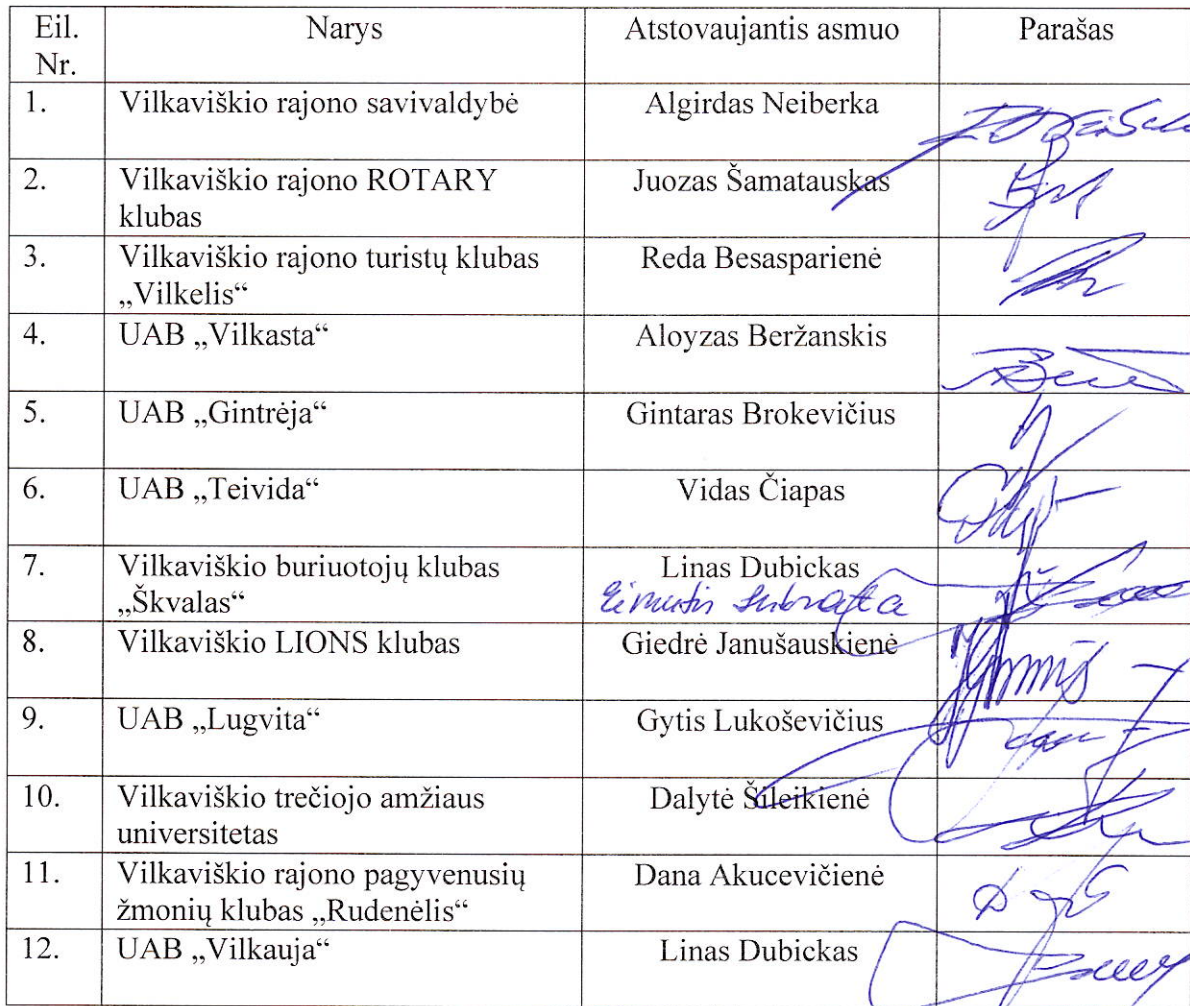 Eil. Nr. Narys Atstovaujantis asmuo Parašas
1. Vilkaviškio rajono savivaldybė Algirdas Neiberka
2. Vilkaviškio rajono ROTARY klubas Juozas Šamatauskas
3. Vilkaviškio rajono turistų klubas „Vilkelis“ Reda Besasparienė
4. UAB „Vilkasta“ Aloyzas Beržanskis
5. UAB „Gintrėja“ Gintaras Brokevičius
6. UAB „Teivida“ Vidas Čiapas
7. Vilkaviškio buriuotojų klubas „Škvalas“ Linas Dubickas
8. Vilkaviškio LIONS klubas Giedrė Janušauskienė
9. UAB „Lugvita“ Gytis Lukoševičius
10. Vilkaviškio trečiojo amžiaus universitetas Dalytė Šileikienė
11. Vilkaviškio rajono pagyvenusių žmonių klubas „Rudenėlis“ Dana Akucevičienė
12. UAB „Vilkauja“ Linas Dubickas